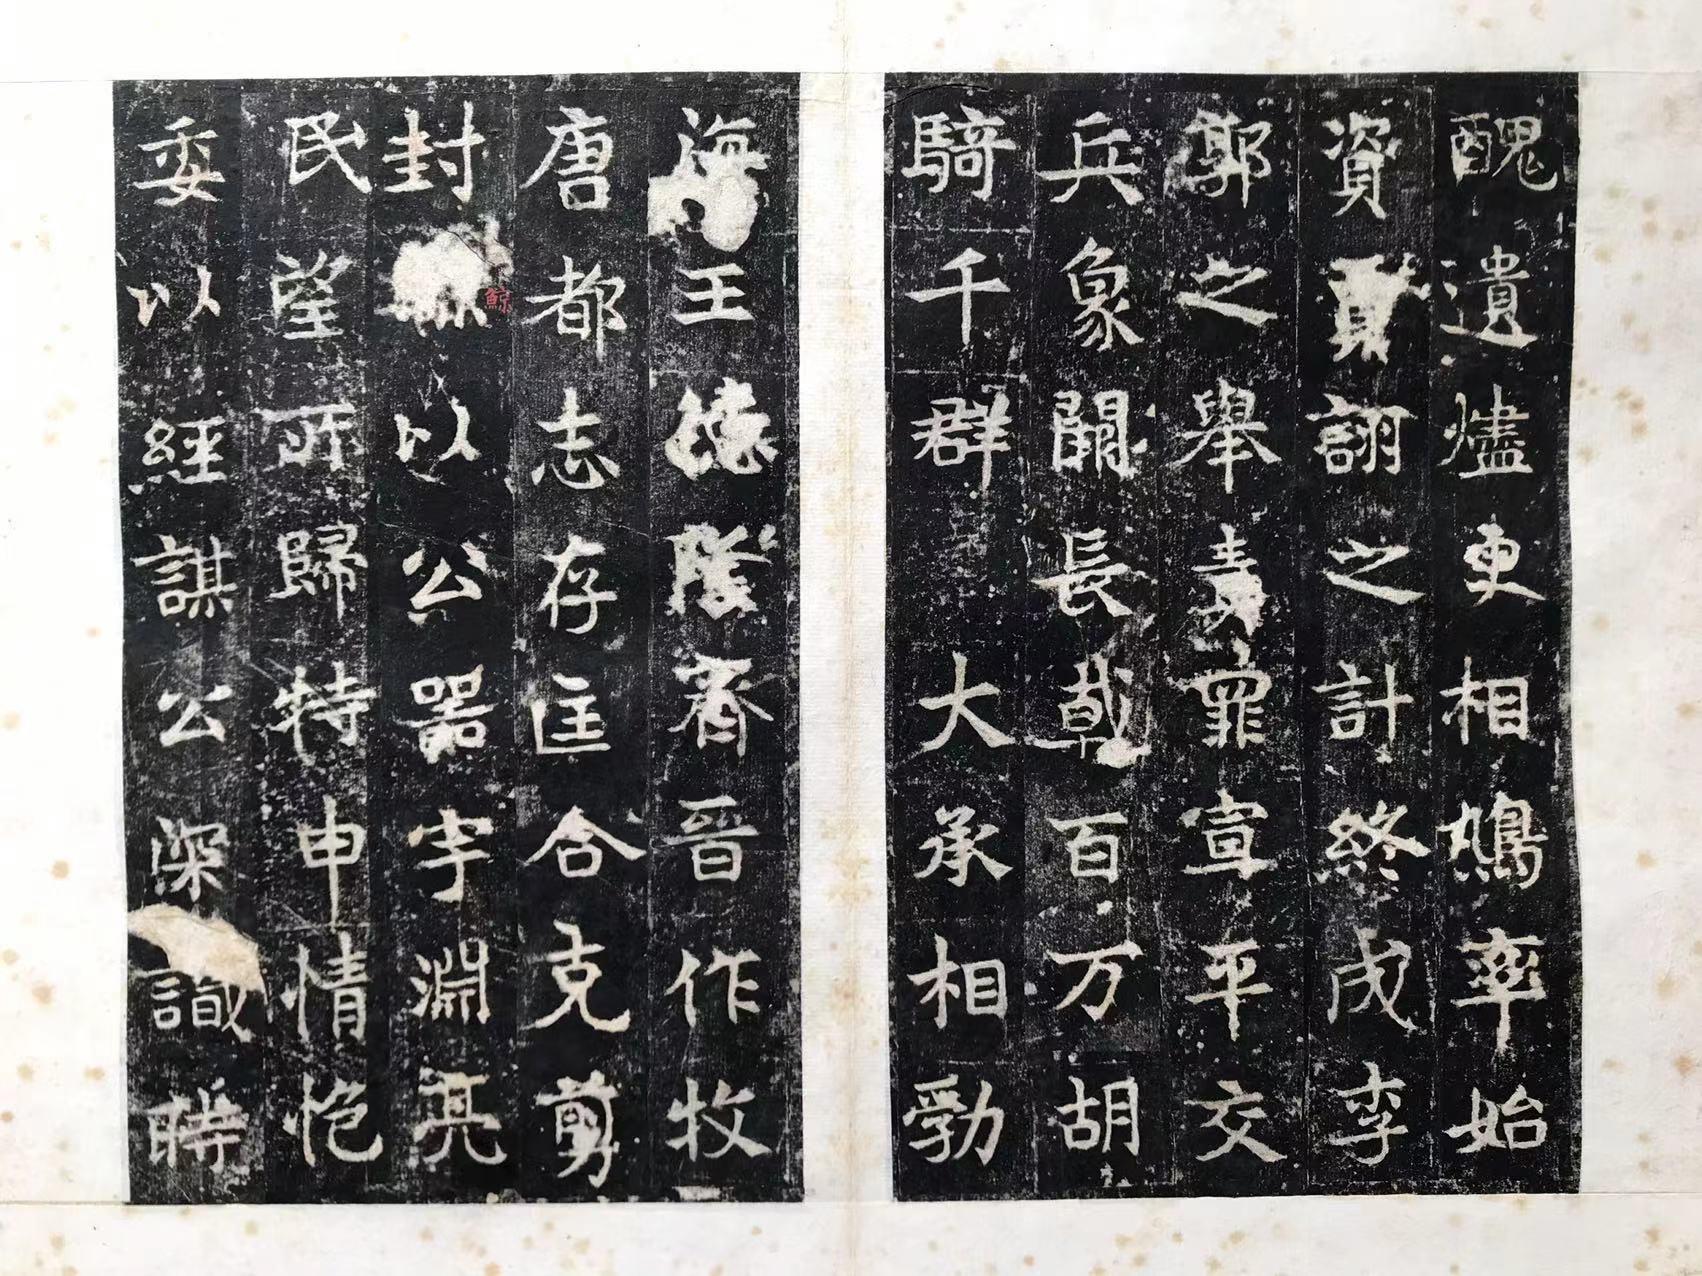 醜遺燼更相鳩率始
資賈詡之計終成李
郭之舉毒宣平交
兵象闕長戟百万胡
騎千群大承相勃
海王德隆齊晉作牧
唐都志存匡合克剪
封鯨以公器宇淵亮
民望所歸特申情
委以經謀公深識時